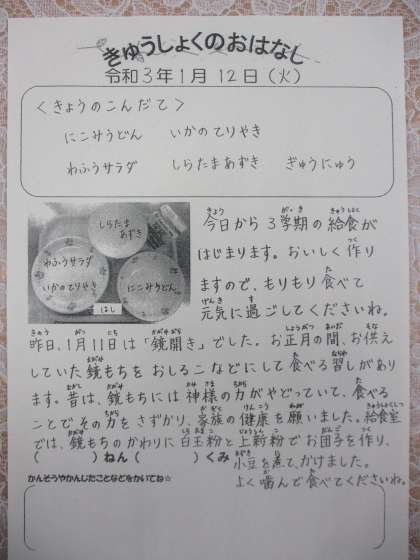 きゅうしょくのおはなし
令和3年1月12日(火)
<きょうのこんだて>
にこみうどん いかのてりやき
わふうサラダ しらたまあずき ぎゅうにゅう
しらたま
あずき
わふうサラダ
いかのてりやき
にこみうどん
はし
今日から3学期の給食が
はじまります。おいしく作り
ますので、もりもり食べて
元気に過ごしてくださいね。
昨日、1月11日は「鏡開き」でした。お正月の間、お供え
していた鏡もちをおしるこなどにして食べる習しがあり
ます。昔は、鏡もちには神様の力がやどっていて、食べる
ことでその力をさずかり、家族の健康を願いました。給食室
では、鏡もちのかわりに白玉粉と上新粉でお団子を作り、
小豆を煮て、かけました。
よく噛んで食べてくださいね。
( )ねん ( )くみ
かんそうやかんじたことなどをかいてね☆